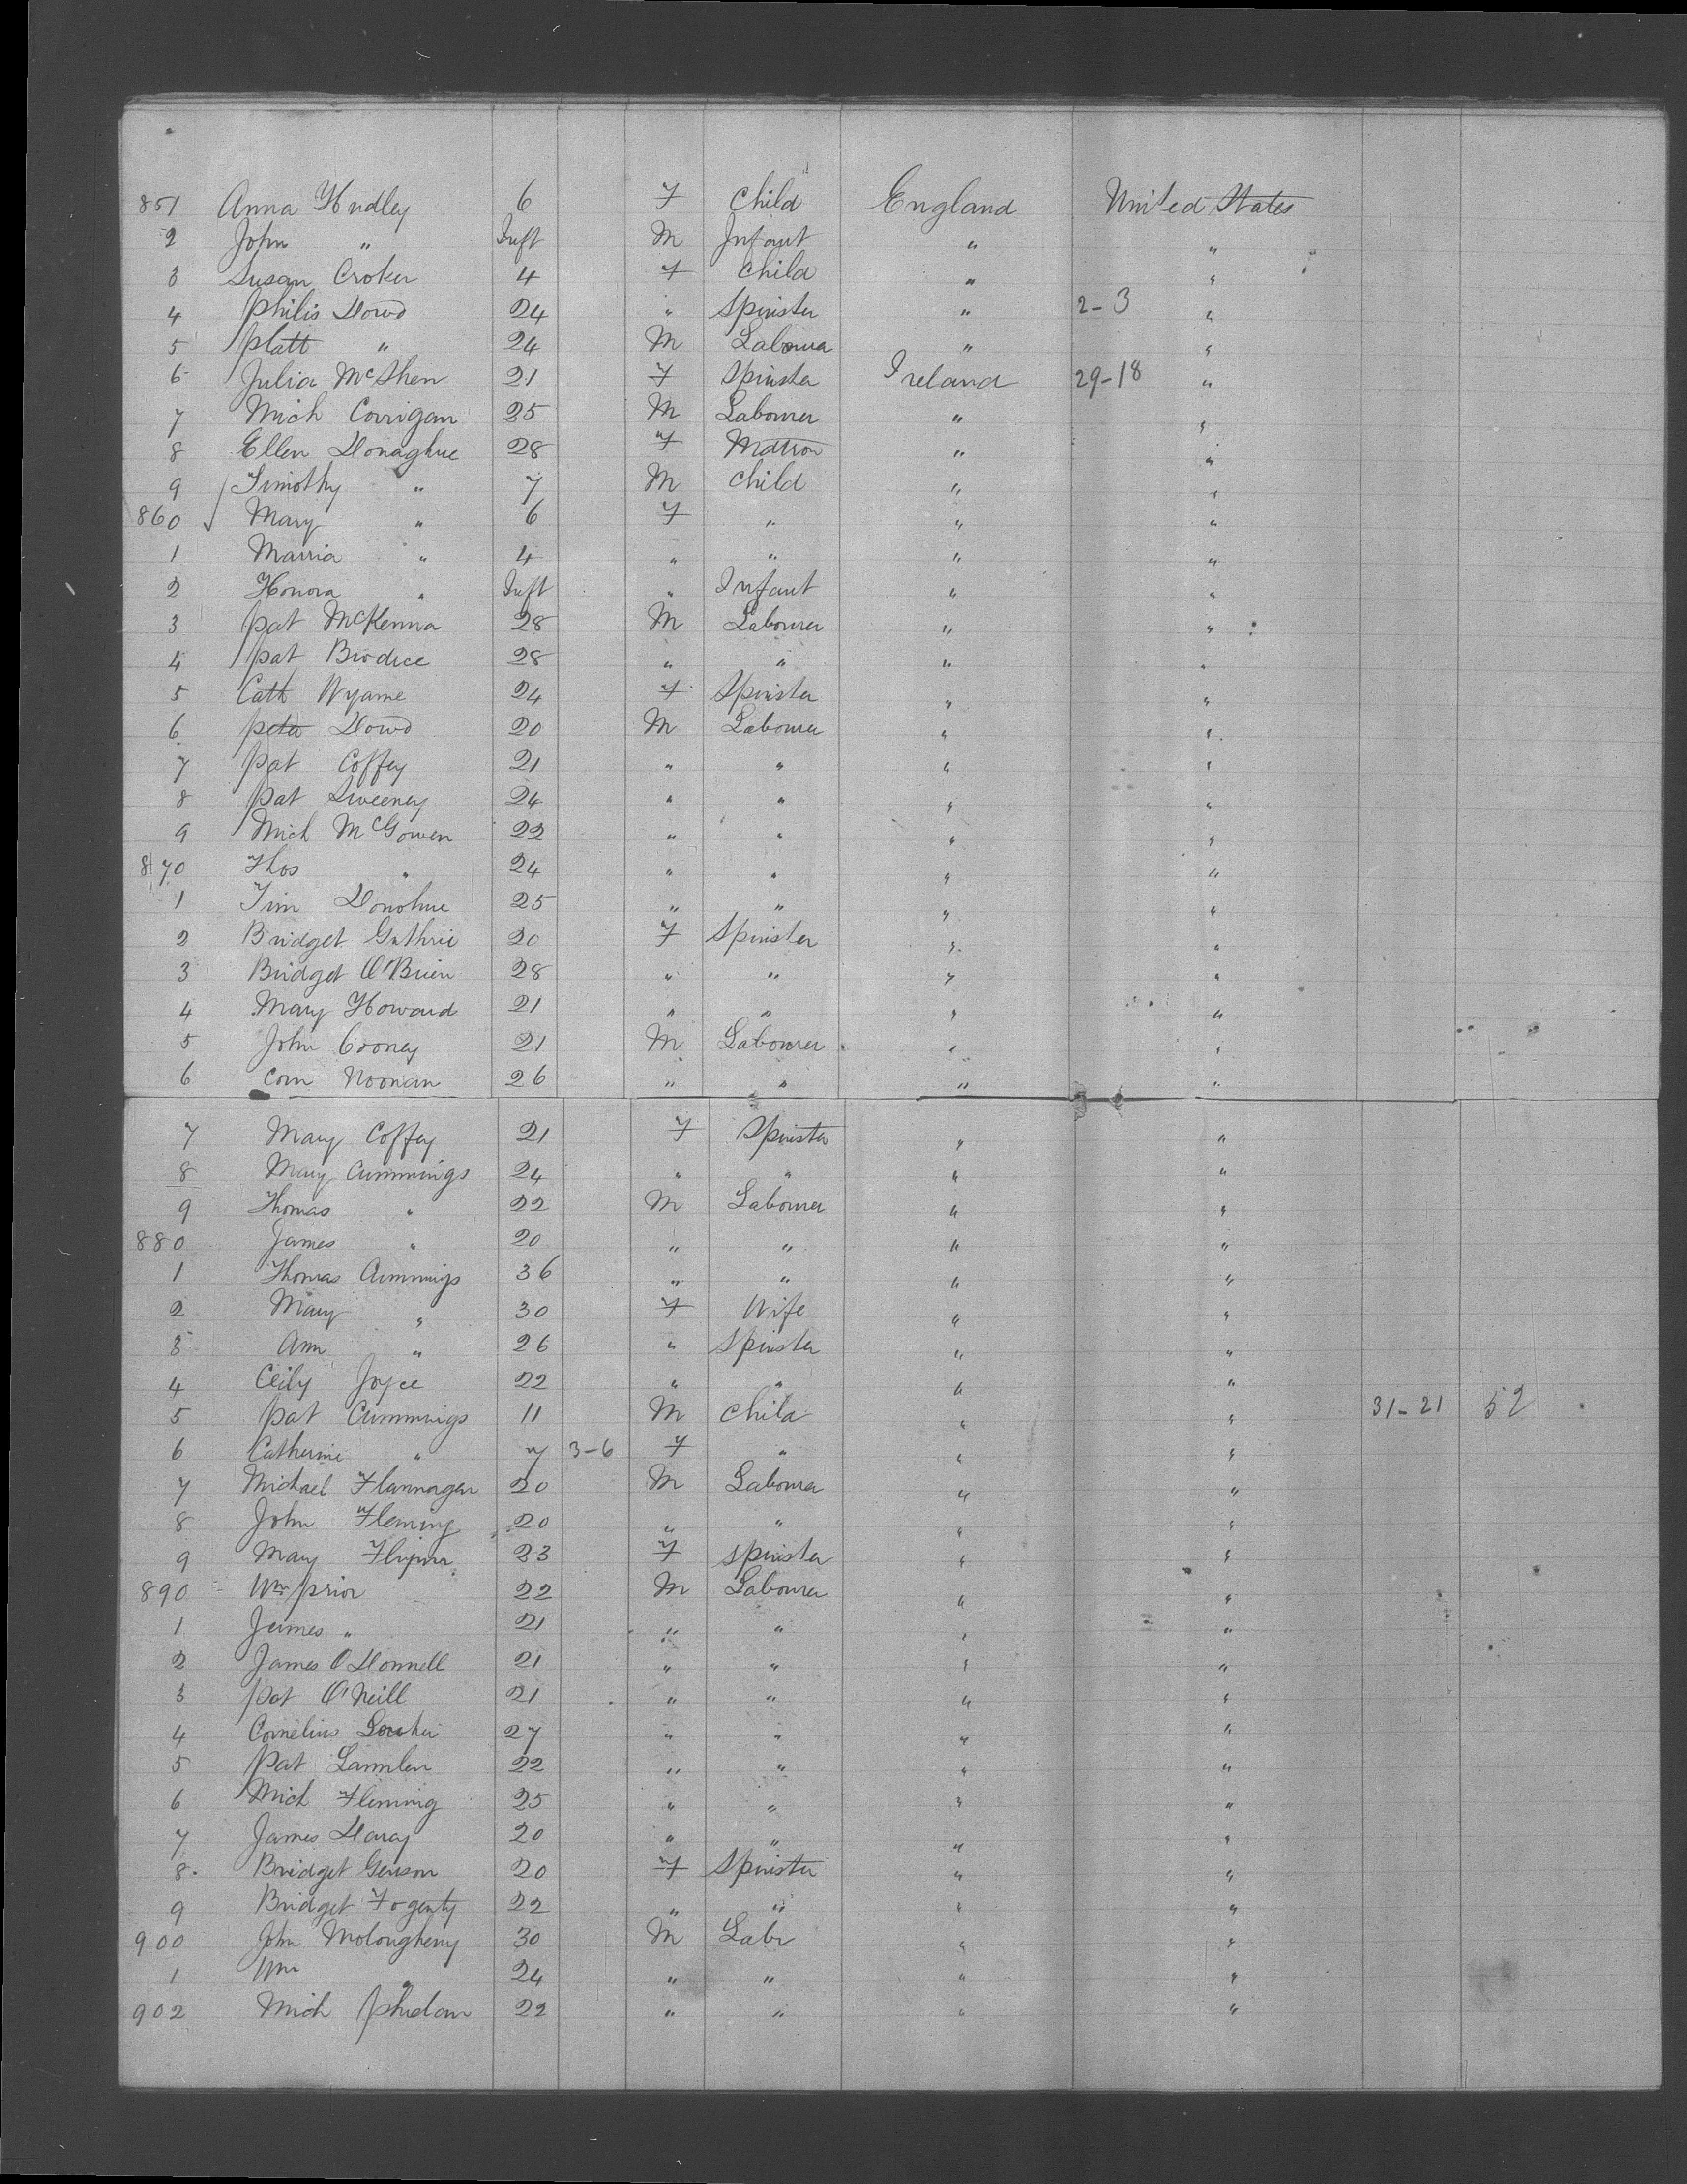 851 Anna Hudley 6 F Child England United States
2 John " Inft M Infant " "
3 Susan Croker 4 F Child " "
4 Philis Dowd 24 " Spinster " 2-3 "
5 Platt " 24 M Labourer " "
6 Julia McShen 21 F Spinster Ireland 29-18 "
7 Mich Corrigan 25 M Labourer " "
8 Ellen Donaghue 28 F Matron " "
9 Timothy " 7 M Child " "
860 Mary " 6 F " " "
1 Marria " 4 " " " "
2 Honora " Inft " Infant " "
3 Pat McKenna 28 M Labourer " "
4 Pat Brodice 28 " " " "
5 Cath Wyame 24 F Spinster " "
6 Peter Dowd 20 M Labourer " "
7 Pat Coffey 21 " " " "
8 Pat Sweeney 24 " " " "
9 Mich McGowen 22 " " " "
870 Thos " 24 " " " "
1 Tim Donohue 25 " " " "
2 Bridget Guthrie 20 F Spinster " "
3 Bridget O'Brien 28 " " " "
4 Mary Howard 21 " " " "
5 John Cooney 21 M Labourer " "
6 Corn Noonan 26 " " " "
7 Mary Coffey 21 F Spinster " "
8 Mary Cummings 24 " " " "
9 Thomas " 22 M Labourer " "
880 James " 20 " " " "
1 Thomas Cummings 36 " " " "
2 Mary " 30 F Wife " "
3 Ann " 26 " Spinster " "
4 Ceily Joyce 22 " " " "
5 Pat Cummings 11 M Child " " 31-21 52
6 Catherine " 7 3-6 F " " "
7 Michael Flannagan 20 M Labourer " "
8 John Fleming 20 " " " "
9 Mary 23 F Spinster " "
890 Wm Prior 22 M Labourer " "
1 James " 21 " " " "
2 James O'Donnell 21 " " " "
3 Pat O'Neill 21 " " " "
4 Cornelius 27 " " " "
5 Pat 22 " " " "
6 Mich Fleming 25 " " " "
7 James 20 " " " "
8 Bridget 20 F Spinster " "
9 Bridget Fogenty 22 " " " "
900 John Molougheny 30 M Labr " "
1 Wm " 24 " " " "
902 Mich Phelan 22 " " " "